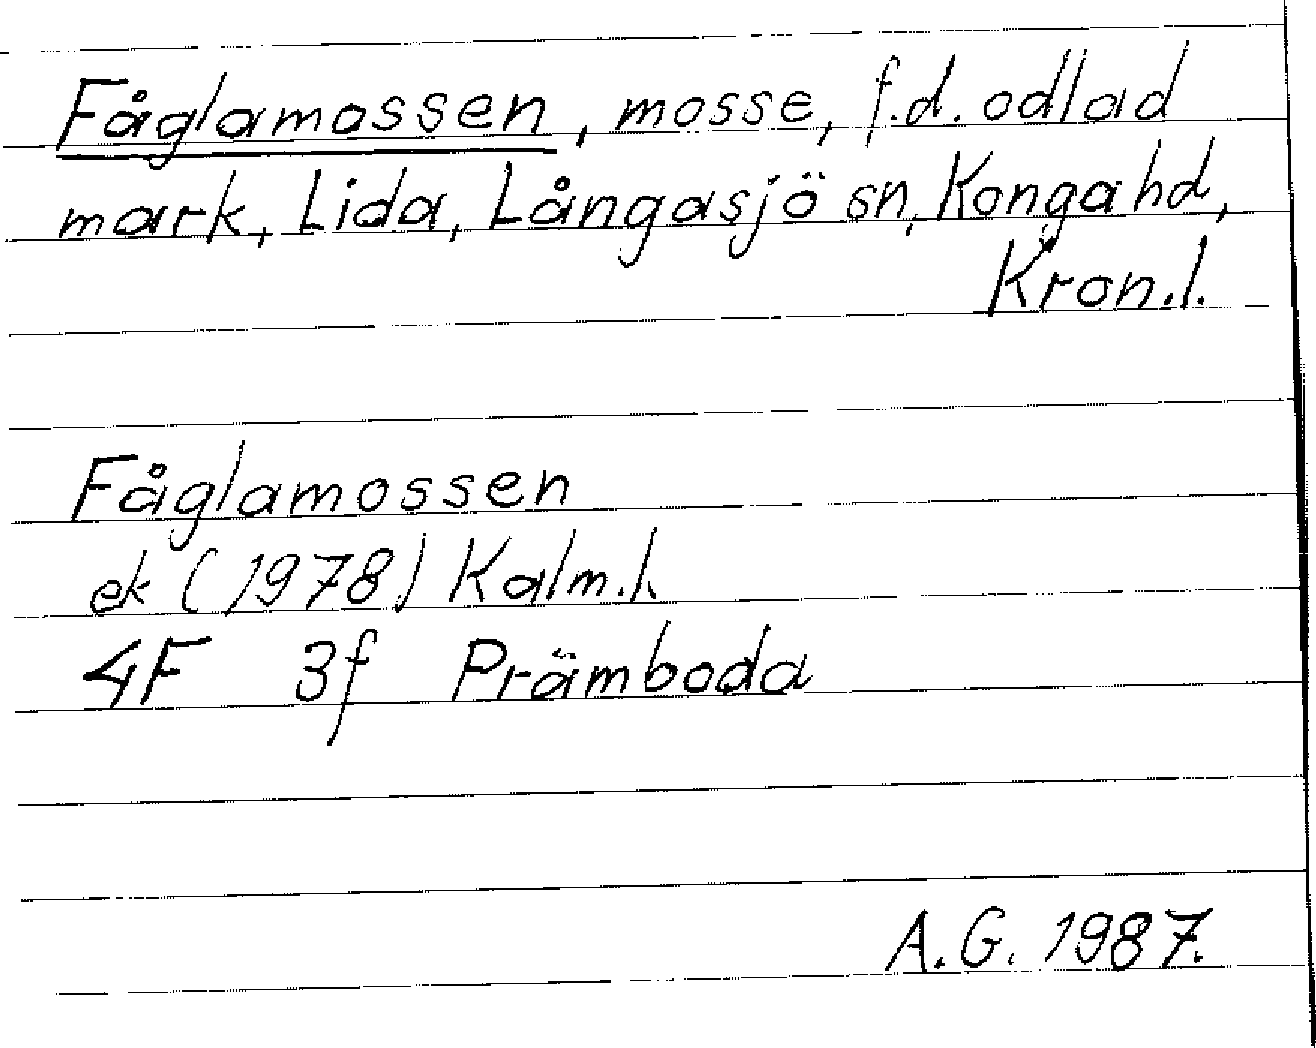 Fåglamossen, mosse, f.d. odlad
mark, Lida, Långasjö sn, Konga hd,
Kron.l.
Fåglamossen
ek (1978) Kalm.l.
4F 3f Främboda
A.G. 1987.